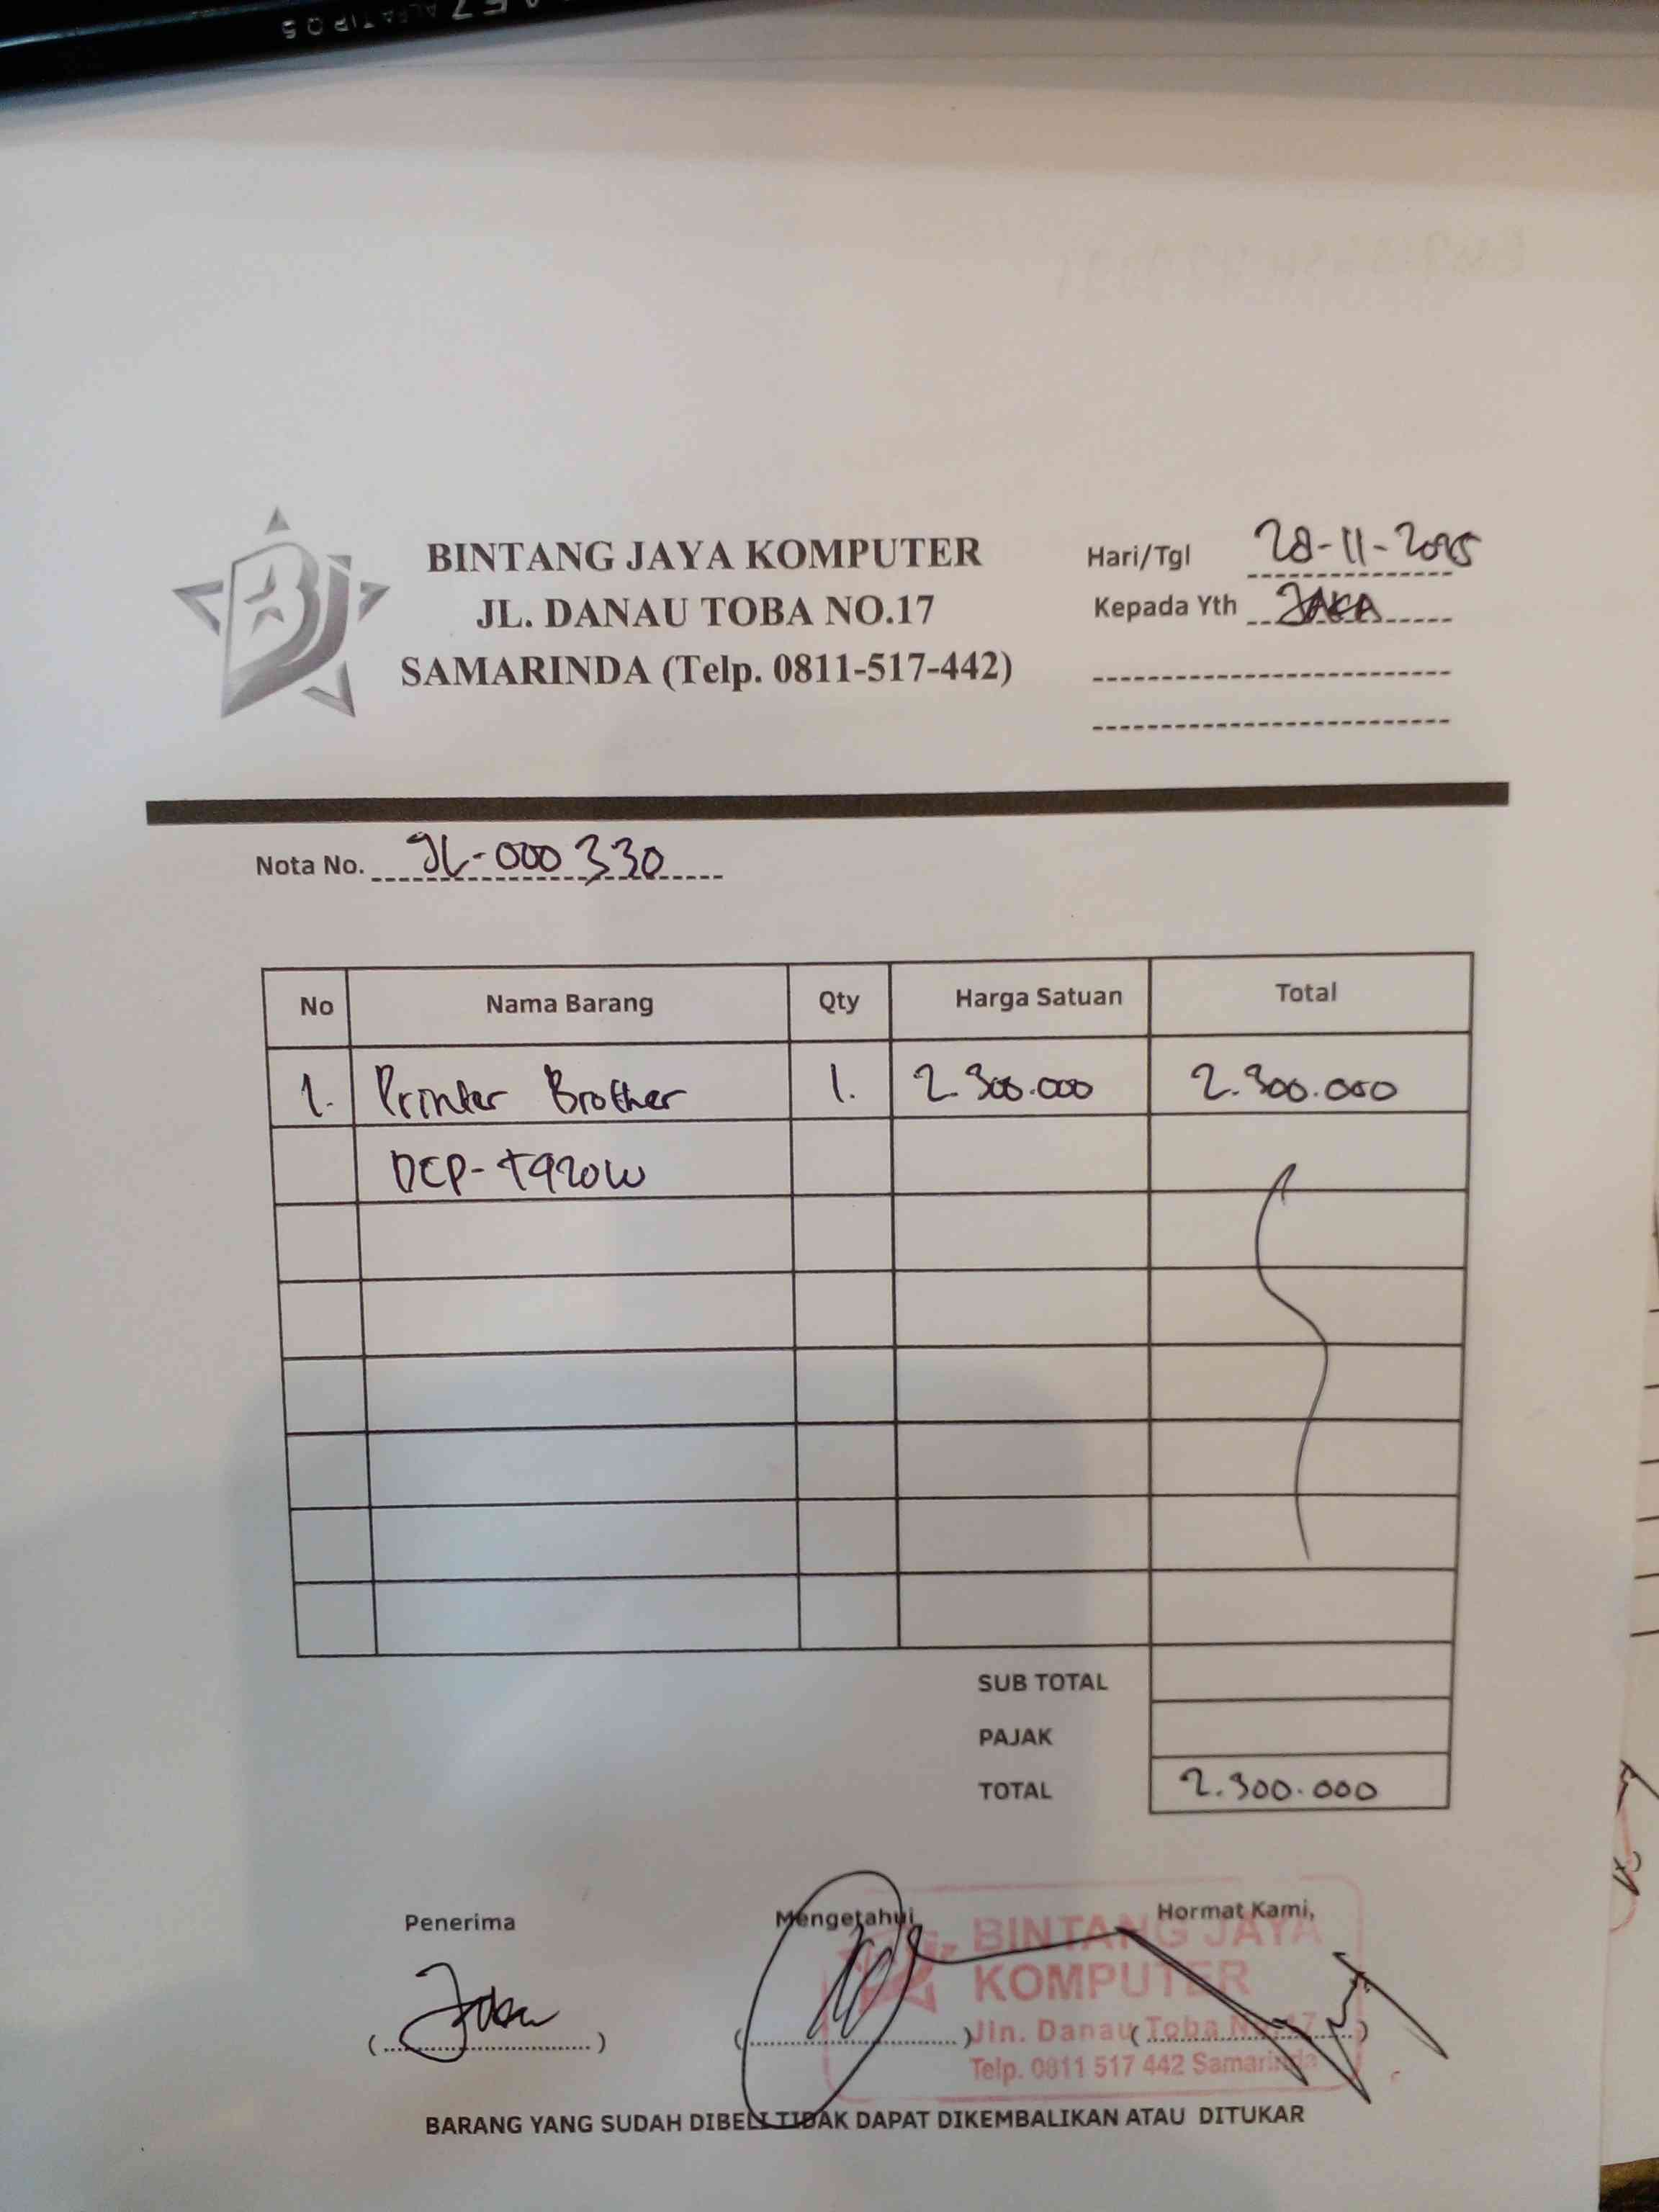 BINTANG JAYA KOMPUTER
JL. DANAU TOBA NO.17
SAMARINDA (Telp. 0811-517-442)
Hari/Tgl 28-11-2025
Kepada Yth JAKA
Nota No. JL-000330
No Nama Barang Qty Harga Satuan Total
1. Printer Brother 1. 2.300.000 2.300.000
DCP-T920W
SUB TOTAL
PAJAK
TOTAL 2.300.000
Penerima Mengetahui Hormat Kami,
Jaka
BINTANG JAYA
KOMPUTER
Jln. Danau Toba No. 17
Telp. 0811 517 442 Samarinda
BARANG YANG SUDAH DIBELI TIDAK DAPAT DIKEMBALIKAN ATAU DITUKAR